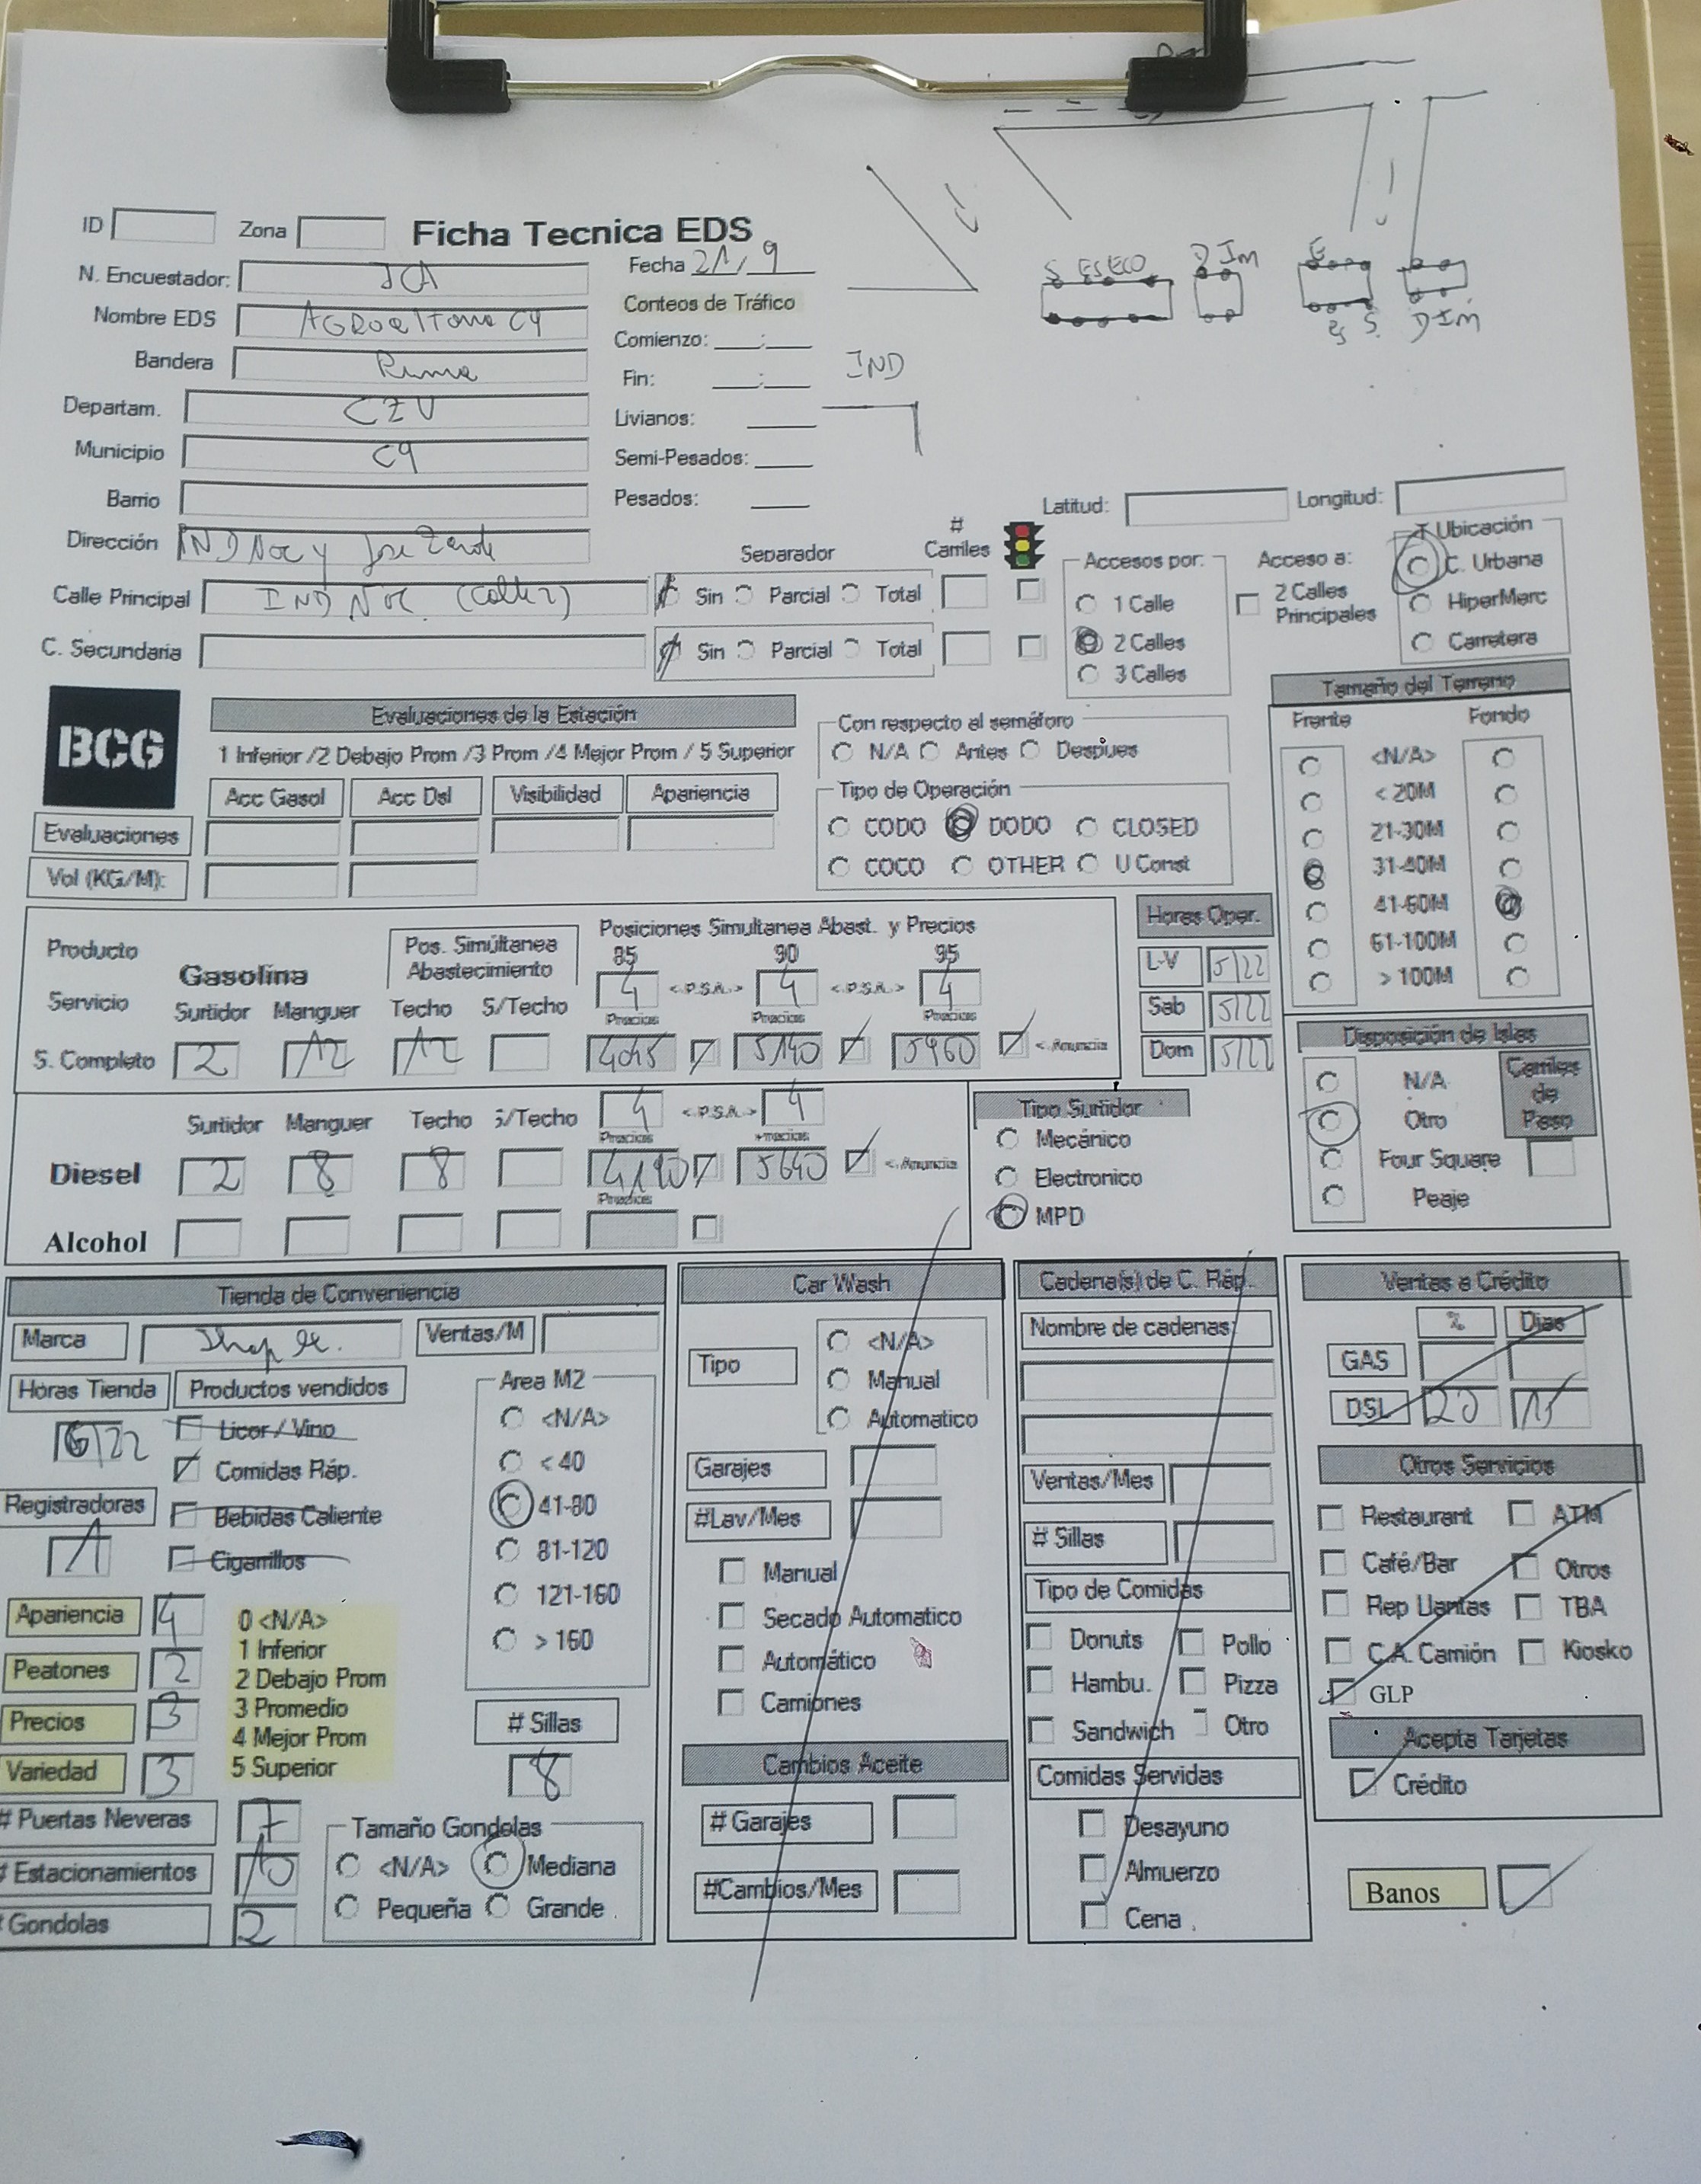 ID Zona Ficha Tecnica EDS
N. Encuestador: JCA Fecha 21/9
Nombre EDS Conteos de Tráfico
Bandera Puma Comienzo: __:__
Fin: __:__ IND
Departam. CZU Livianos:
Municipio Semi-Pesados:
Barrio Pesados:
S ES ECO D Im
E
S D Im
Latitud: Longitud:
Dirección IND Noc y
Separador # Carriles
Calle Principal IND Noc
Sin Parcial Total
C. Secundaria
Sin Parcial Total
Accesos por:
1 Calle
2 Calles
3 Calles
Acceso a:
2 Calles Principales
T Ubicación
C. Urbana
HiperMerc
Carretera
BCG
Evaluaciones de la Estación
1 Inferior /2 Debajo Prom /3 Prom /4 Mejor Prom / 5 Superior
Acc Gasol Acc Dsl Visibilidad Apariencia
Evaluaciones
Vol (KG/M):
Con respecto al semáforo
N/A Antes Despues
Tipo de Operación
CODO DODO CLOSED
COCO OTHER U Const
Tamaño del Terreno
Frente Fondo
<N/A>
< 20M
21-30M
31-40M
41-60M
61-100M
> 100M
Producto Gasolina Pos. Simúltanea Abastecimiento
Posiciones Simultanea Abast. y Precios
85 90 95
4 <.P.S.A.> 4 <.P.S.A.> 4
Servicio Surtidor Manguer Techo S/Techo Precios Precios Precios
S. Completo 2 12 12 4045 5140 5960 <.Anuncia
Horas Oper.
L-V 5/22
Sab 5/22
Dom 5/22
Disposición de Islas
N/A
Otro
Four Square
Peaje
Carriles de Paso
Surtidor Manguer Techo S/Techo 4 <.P.S.A.> 4
Precios Precios
Diesel 2 8 8 4190 5640 <.Anuncia
Precios
Alcohol
Tipo Surtidor
Mecánico
Electronico
MPD
Tienda de Conveniencia
Marca Ventas/M
Horas Tienda Productos vendidos
6/22
Licor / Vino
Comidas Ráp.
Registradoras Bebidas Caliente
1 Cigarrillos
Area M2
<N/A>
< 40
41-80
81-120
121-160
> 160
Apariencia 4
Peatones 2
Precios 3
Variedad 3
0 <N/A>
1 Inferior
2 Debajo Prom
3 Promedio
4 Mejor Prom
5 Superior
# Sillas
8
# Puertas Neveras 7
# Estacionamientos 10
# Gondolas 2
Tamaño Gondolas
<N/A> Mediana
Pequeña Grande
Car Wash
Tipo
<N/A>
Manual
Automatico
Garajes
#Lav/Mes
Manual
Secado Automatico
Automático
Camiones
Cambios Aceite
# Garajes
#Cambios/Mes
Cadena(s) de C. Ráp.
Nombre de cadenas:
Ventas/Mes
# Sillas
Tipo de Comidas
Donuts Pollo
Hambu. Pizza
Sandwich Otro
Comidas Servidas
Desayuno
Almuerzo
Cena
Ventas a Crédito
% Dias
GAS
DSL 20 15
Otros Servicios
Restaurant ATM
Café/Bar Otros
Rep Llantas TBA
C.A. Camión Kiosko
GLP
Acepta Tarjetas
Crédito
Banos